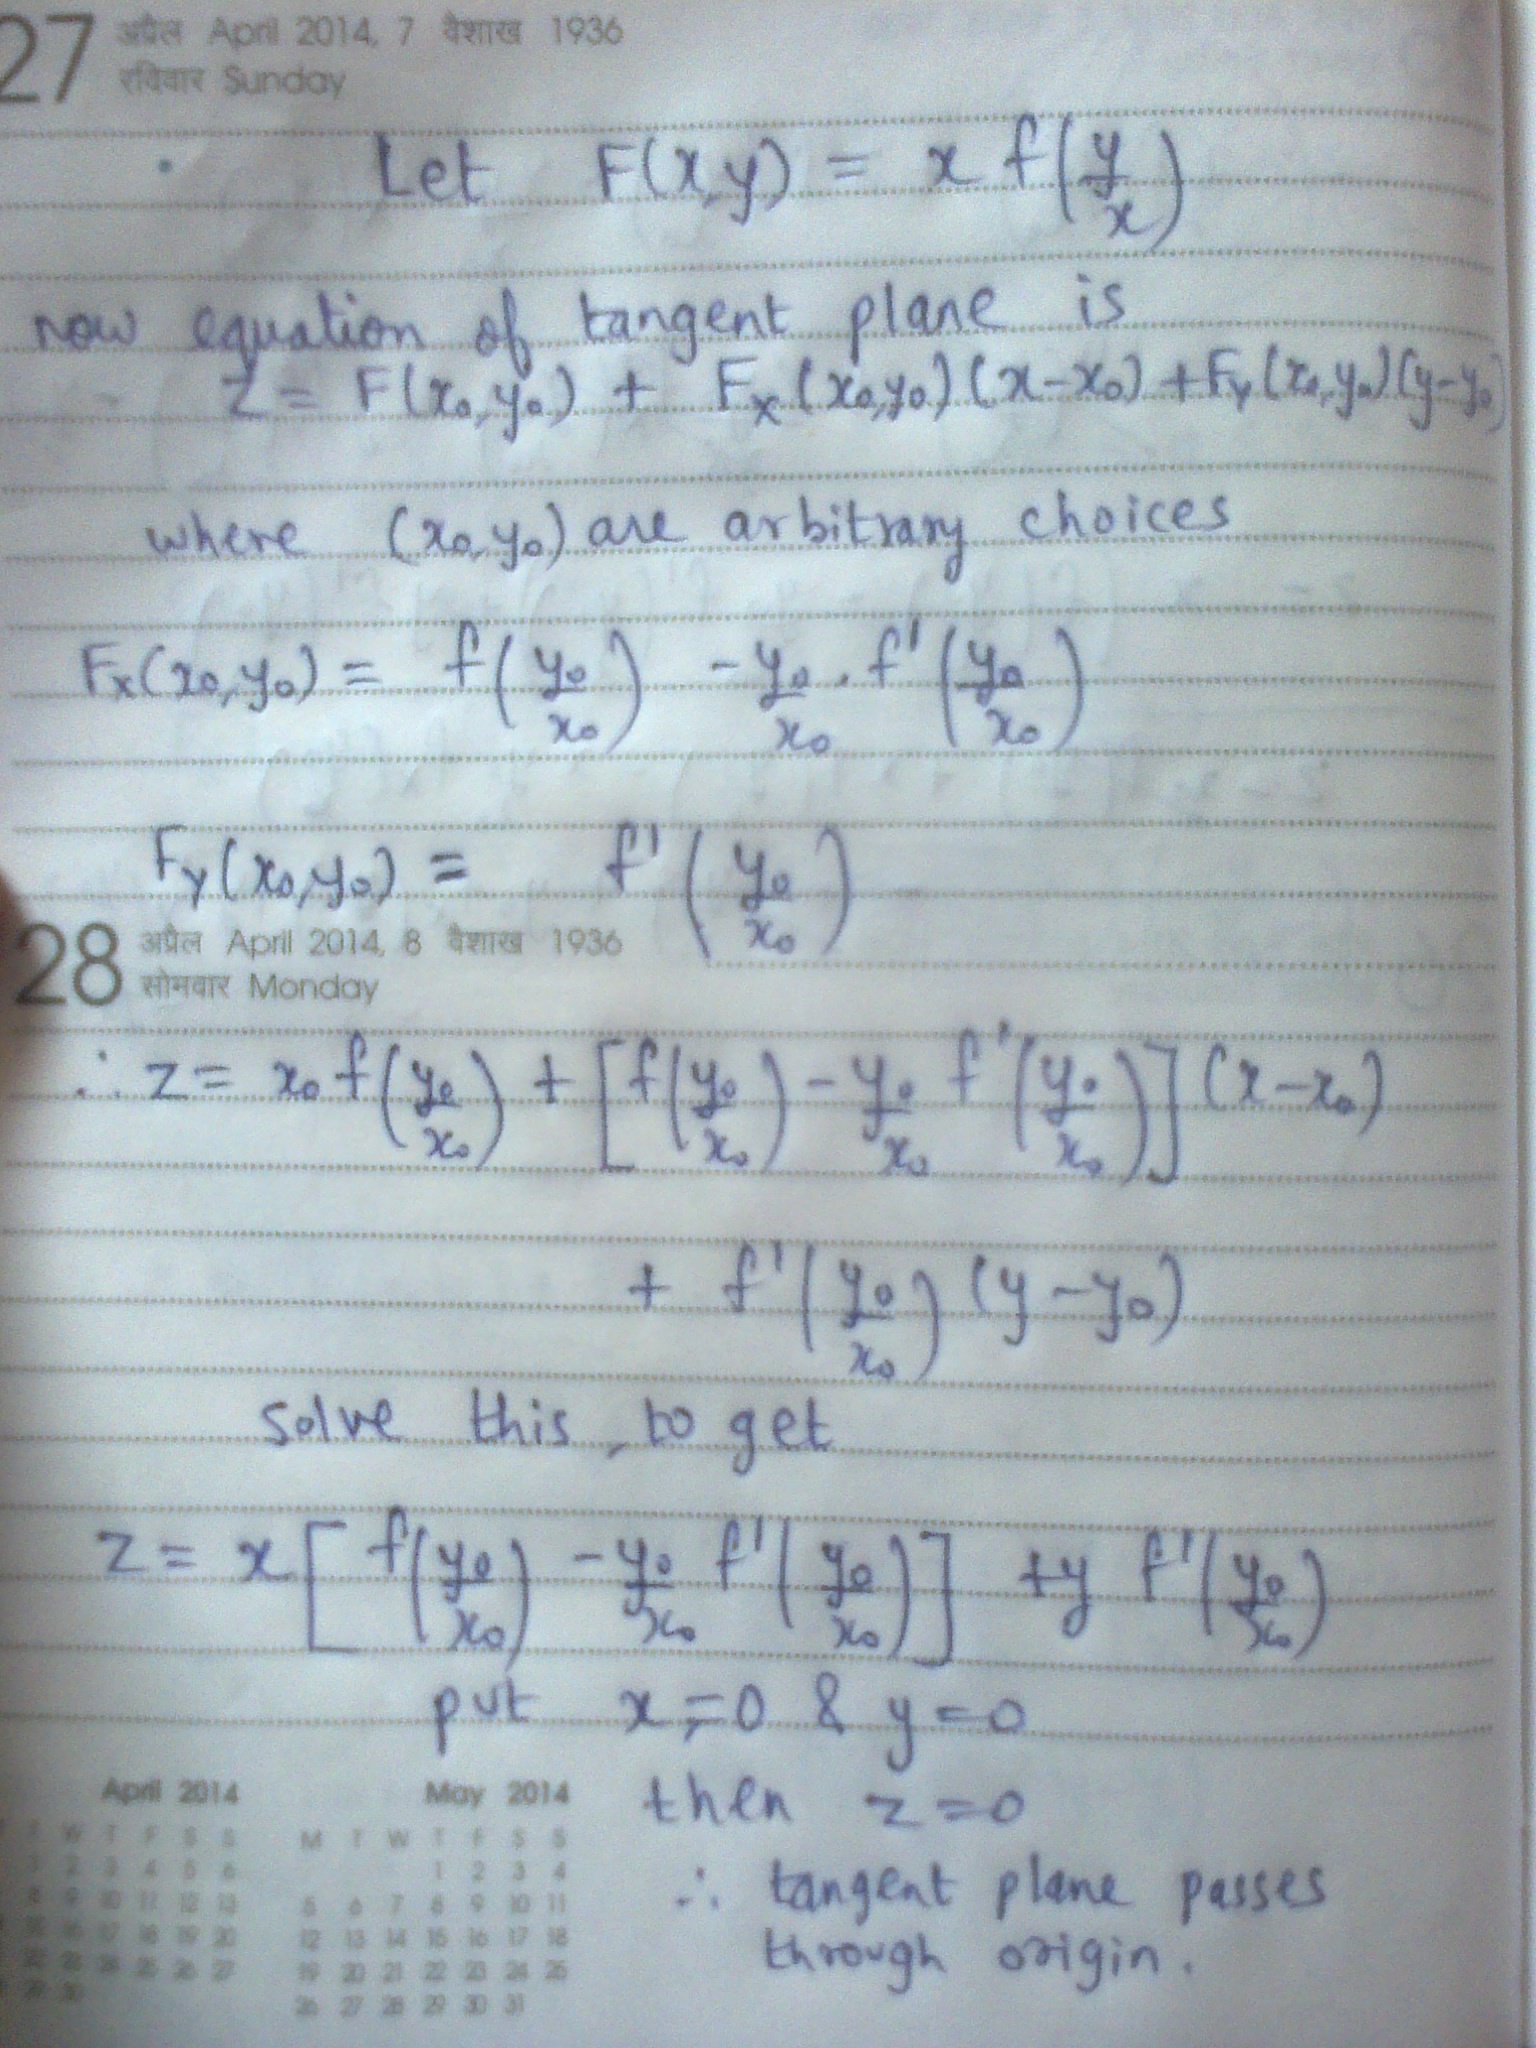 27 अप्रैल April 2014, 7 वैशाख 1936
रविवार Sunday
Let F(x,y) = x f(y/x)
now equation of tangent plane is
z = F(x₀,y₀) + Fx(x₀,y₀)(x-x₀) + Fy(x₀,y₀)(y-y₀)
where (x₀,y₀) are arbitrary choices
Fx(x₀,y₀) = f(y₀/x₀) - y₀/x₀ . f'(y₀/x₀)
Fy(x₀,y₀) = f'(y₀/x₀)
28 अप्रैल April 2014, 8 वैशाख 1936
सोमवार Monday
∴ z = x₀ f(y₀/x₀) + [f(y₀/x₀) - y₀/x₀ f'(y₀/x₀)] (x-x₀)
+ f'(y₀/x₀) (y-y₀)
solve this, to get
z = x [f(y₀/x₀) - y₀/x₀ f'(y₀/x₀)] + y f'(y₀/x₀)
put x=0 & y=0
then z=0
∴ tangent plane passes
through origin.
April 2014 May 2014
W T F S S M T W T F S S
1 2 3 4 5 6 1 2 3 4
8 9 10 11 12 13 5 6 7 8 9 10 11
16 17 18 19 20 12 13 14 15 16 17 18
22 23 24 25 26 27 19 20 21 22 23 24 25
29 30 26 27 28 29 30 31